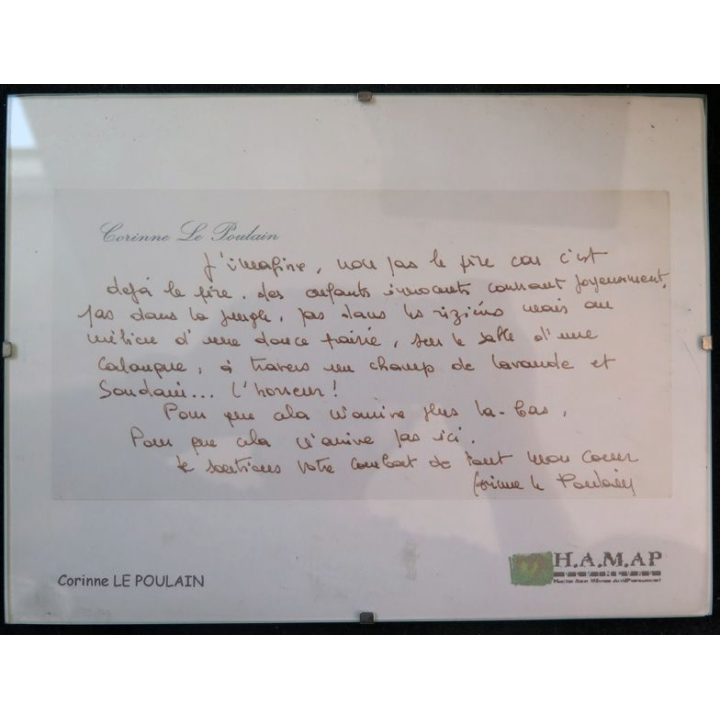 Corinne Le Poulain
J'imagine, non pas le pire car c'est
déjà le pire, des enfants innocents courant joyeusement,
pas dans la jungle, pas dans les rizières mais au
milieu d'une douce prairie, sur le sable d'une
Calanque, à travers un champ de lavande et
Soudain... l'horreur!
Pour que cela n'arrive plus là-bas,
Pour que cela n'arrive pas ici.
Je soutiens votre combat de tout mon coeur
Corinne Le Poulain
Corinne LE POULAIN
H.A.M.AP